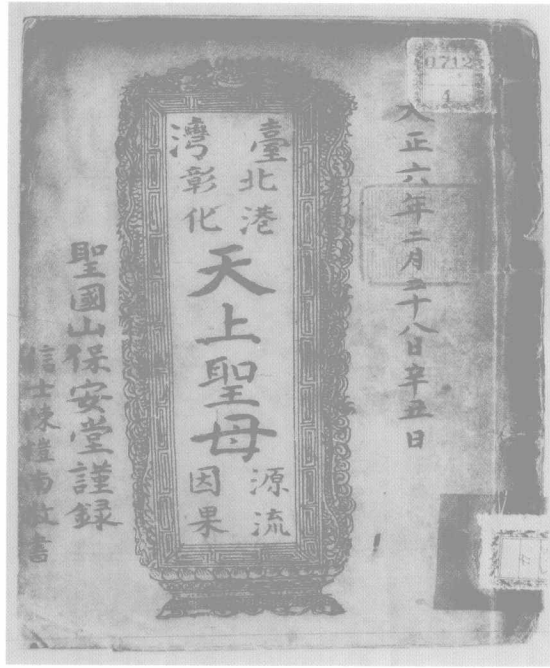 0.712
1
大正六年二月二十八日辛丑日
臺灣
北港
彰化
天上聖母
源流
因果
聖國山保安堂謹録
信士陳
書